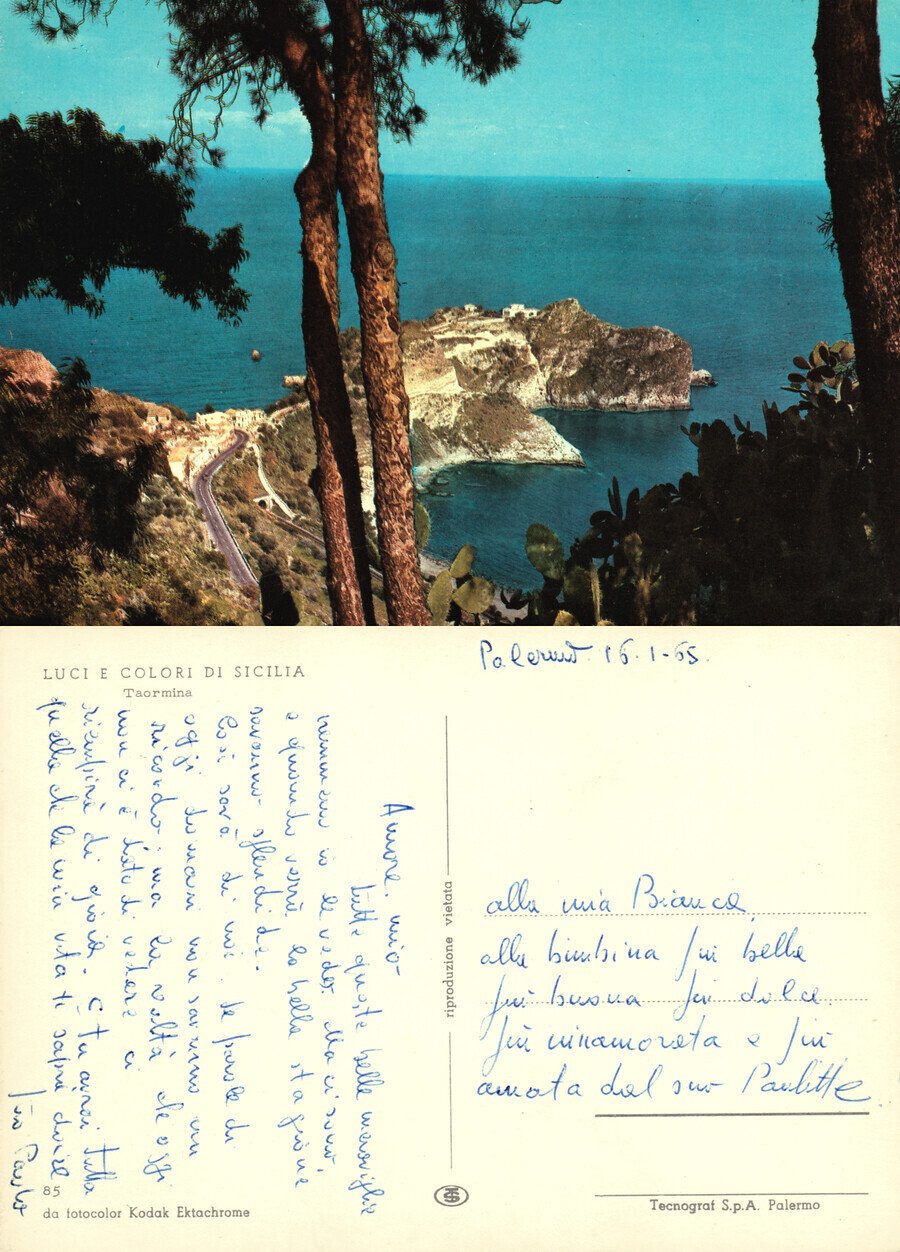 LUCI E COLORI DI SICILIA
Taormina
Palermo 16-1-65.
Amore mio
tutte queste belle meraviglie
nemmeno io le vedo. Ma ci sono,
e quando verrà la bella stagione
saranno splendide.
Così sarà di noi. Le parole di
oggi domani non saranno un
ricordo: ma la realtà che oggi
non ci è dato di vedere ci
riempirà di gioia. E tu avrai tutta
quella che la mia vita ti saprà dare
tuo Paolo
riproduzione vietata
alla mia Bianca,
alla bimbina più bella
più buona più dolce
più innamorata e più
amata dal suo Paolitte
85
da fotocolor Kodak Ektachrome
Tecnograf S.p.A. Palermo